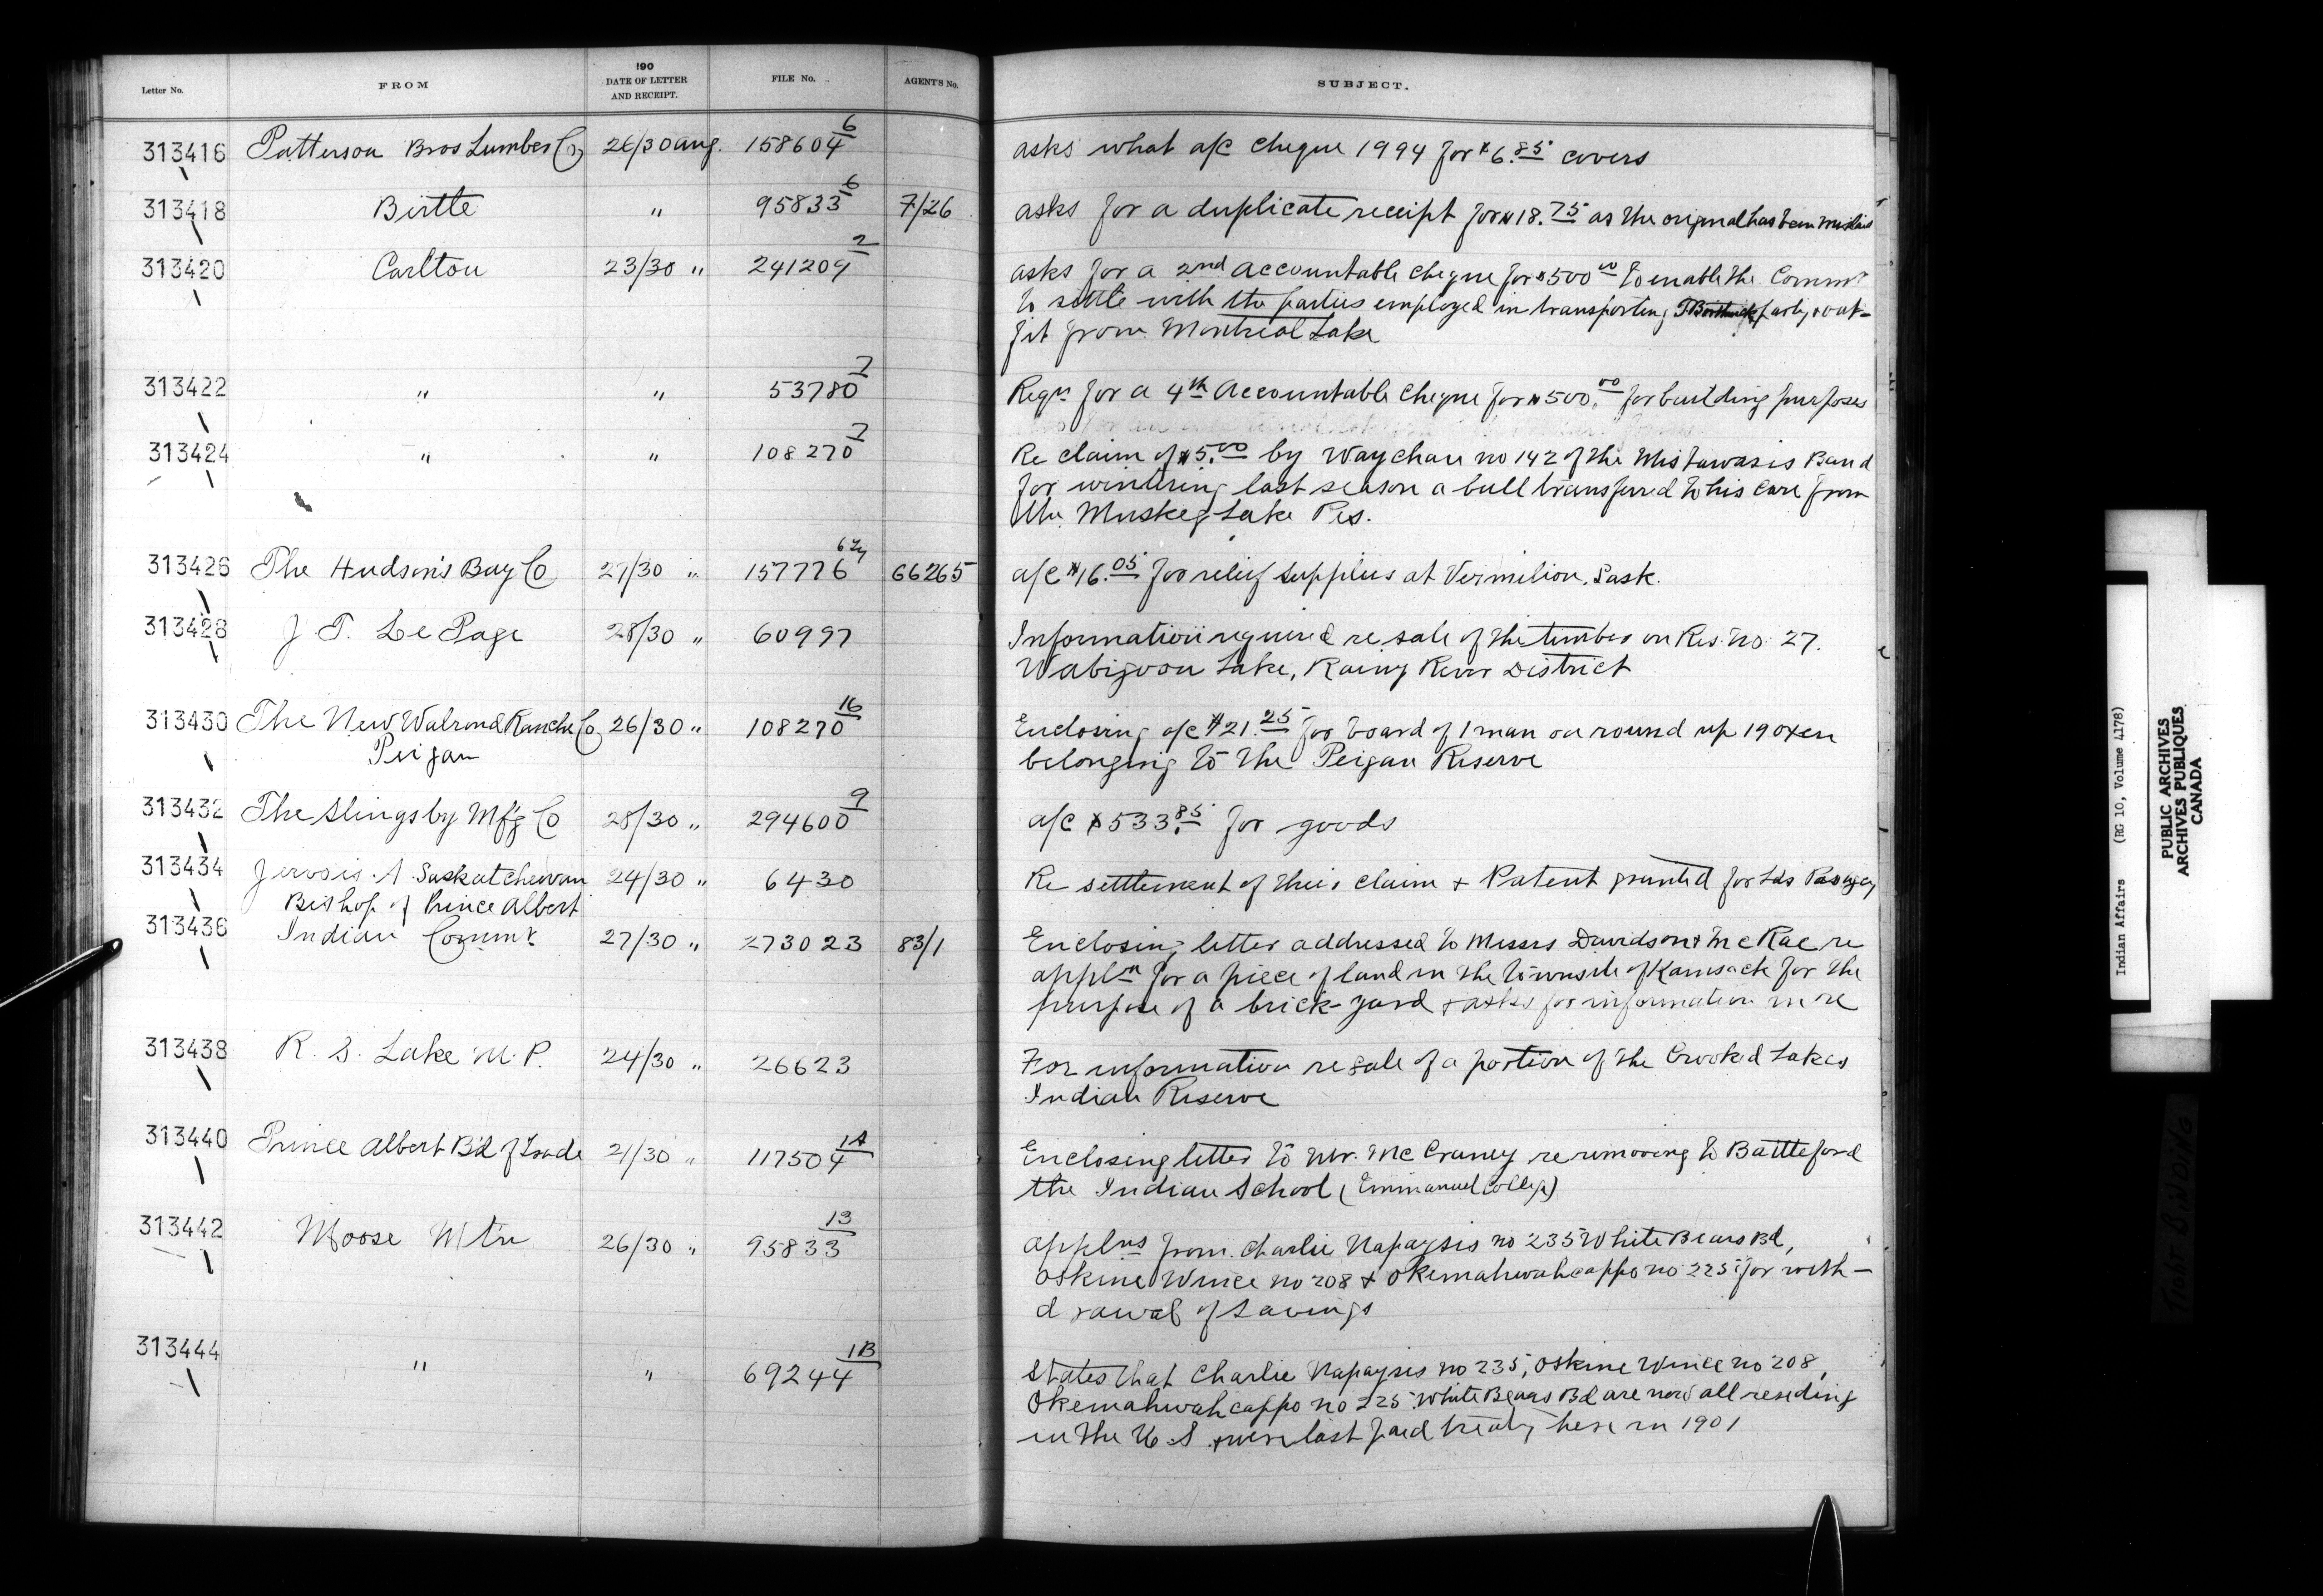 Letter No. FROM 190 DATE OF LETTER AND RECEIPT. FILE No. AGENT'S No. SUBJECT.
313416 Patterson Bros Lumber Co 26/30 Aug. 158604 6 asks what a/c cheque 1994 for $6.85 covers
313418 Birtle " 95833 6 7/26 asks for a duplicate receipt for $18.75 as the original has been mislaid
313420 Carlton 23/30 " 241209 2 asks for a 2nd Accountable cheque for $500 00 to enable the Commr
to settle with the parties employed in transporting party & out-
fit from Montreal Lake
313422 " " 53780 7 Reqn for a 4th Accountable Cheque for $500.00 for building purposes
313424 " " 108270 7 Re claim of $5.00 by Waychan no 142 of the Mistawasis Band
for wintering last season a bull transferred to his care from
the Muskeg Lake Res.
313426 The Hudson's Bay Co 27/30 " 157776 66265 a/c $16.05 for relief supplies at Vermilion, Sask.
313428 J. T. Le Page 28/30 " 60997 Information required re sale of the timber on Res. no 27.
Wabigoon Lake, Rainy River District
313430 The New Walrond Ranche Co 26/30 " 108270 16 Enclosing a/c $21.25 for board of 1 man on round up 19 oxen
Peigan belonging to the Peigan Reserve
313432 The Slingsby Mf'g Co 28/30 " 294600 9 a/c $533.85 for goods
313434 Jervois. A. Saskatchewan 24/30 " 6430 Re settlement of their claim & Patent granted for Lds Pas agcy
Bishop of Prince Albert
313436 Indian Commr. 27/30 " 273023 83/1 Enclosing letter addressed to Messrs Davidson & McRae re
appln for a piece of land in the townsite of Kamsack for the
purpose of a brick-yard & asks for information in re
313438 R. S. Lake M.P. 24/30 " 26623 For information re sale of a portion of the Crooked Lakes
Indian Reserve
313440 Prince Albert B'd of Trade 21/30 " 117504 1A Enclosing letter to Mr. McCraney re removing to Battleford
the Indian School (Emmanuel College)
313442 Moose Mtn 26/30 " 95833 13 applns from Charlie Napaysis no 235 White Bears Bd,
Oskine Wince no 208 & Okemahwahcappo no 225 for with-
drawal of savings
313444 " " 69244 1B States that Charlie Napaysis no 235, Oskine Wince no 208,
Okemahwahcappo no 225 White Bears Bd are now all residing
in the U.S. & were last paid treaty here in 1901
Indian Affairs (RG 10, Volume 4178)
PUBLIC ARCHIVES
ARCHIVES PUBLIQUES
CANADA